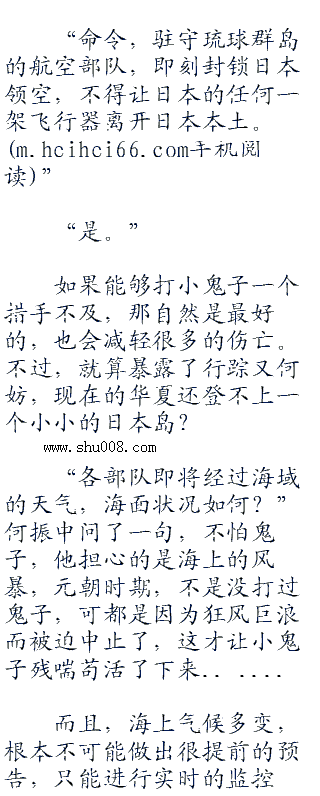 “命令，驻守琉球群岛
的航空部队，即刻封锁日本
领空，不得让日本的任何一
架飞行器离开日本本土。
(m.hcihci66.com手机阅
读)”
“是。”
如果能够打小鬼子一个
措手不及，那自然是最好
的，也会减轻很多的伤亡。
不过，就算暴露了行踪又何
妨，现在的华夏还登不上一
个小小的日本岛？
www.shu008.com
“各部队即将经过海域
的天气，海面状况如何？”
何振中问了一句，不怕鬼
子，他担心的是海上的风
暴，元朝时期，不是没打过
鬼子，可都是因为狂风巨浪
而被迫中止了，这才让小鬼
子残喘苟活了下来.. ....
而且，海上气候多变，
根本不可能做出很提前的预
告，只能进行实时的监控